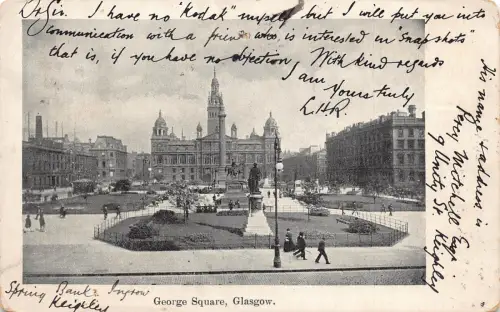 Dr Sir. I have no "Kodak" myself but I will put you into
communication with a friend who is interested in "Snapshots"
that is, if you have no objection, With kind regards
I am
Yours truly
LHR.
His name & address is
Percy Mitchell Esq
9 Unity St Keighley
Spring Bank Ingrow
Keighley
George Square, Glasgow.